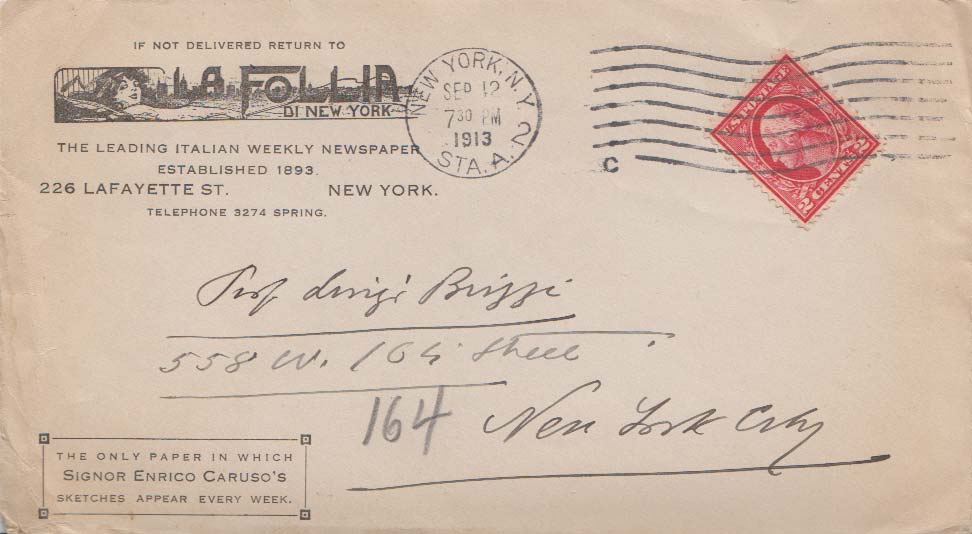 IF NOT DELIVERED RETURN TO
LA FOLLIA
DI NEW YORK
THE LEADING ITALIAN WEEKLY NEWSPAPER
ESTABLISHED 1893.
226 LAFAYETTE ST. NEW YORK.
TELEPHONE 3274 SPRING.
NEW YORK, N.Y.
SEP 12
7 30 PM
1913
STA. A. 2
C
U.S. POSTAGE
2 CENTS 2
Prof Luigi
558 W. 164 Street
164 New York City
THE ONLY PAPER IN WHICH
SIGNOR ENRICO CARUSO'S
SKETCHES APPEAR EVERY WEEK.